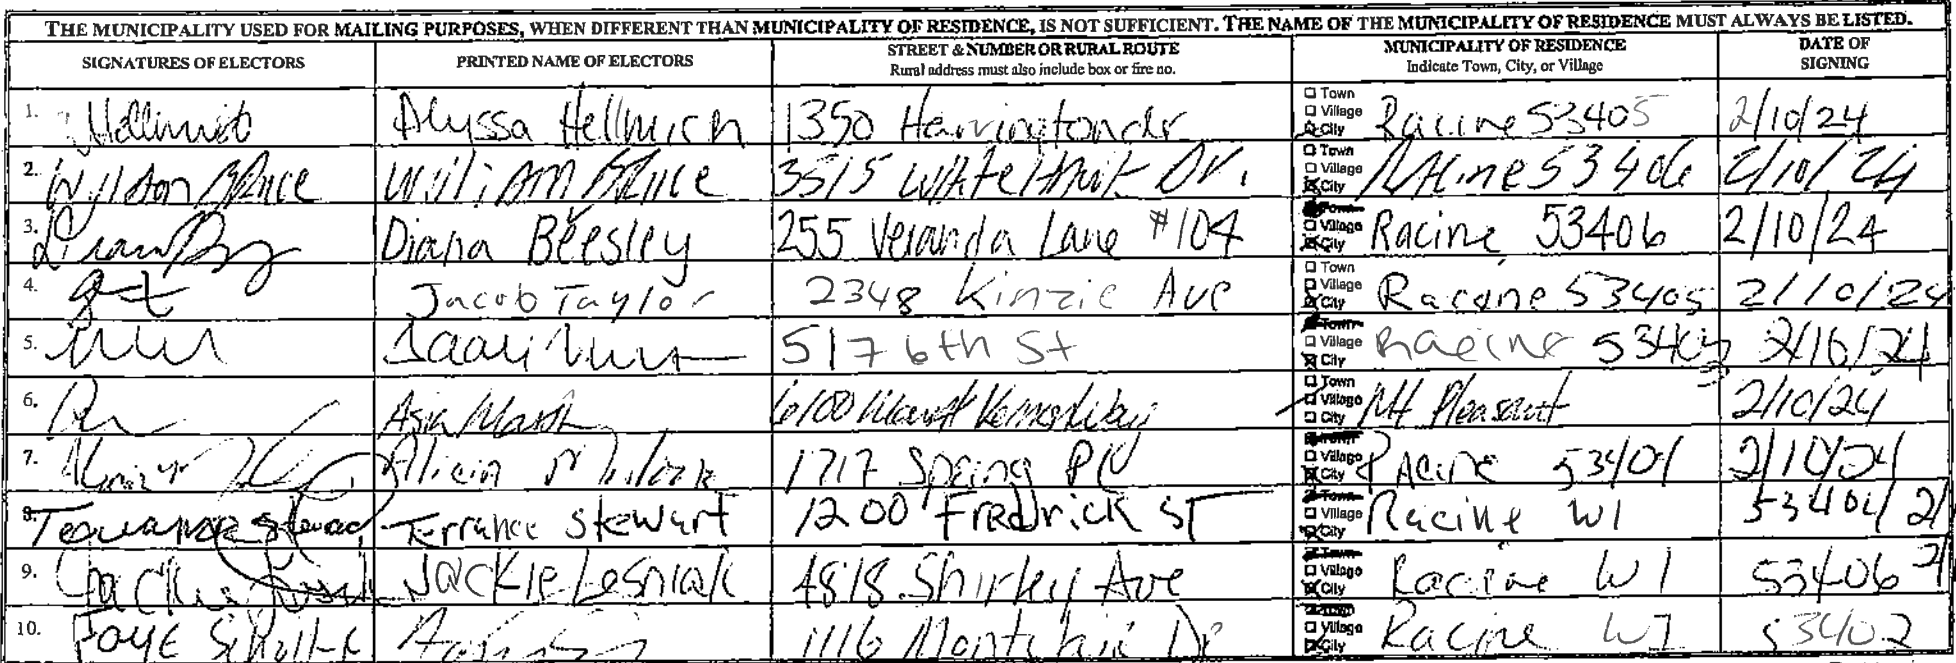 THE MUNICIPALITY USED FOR MAILING PURPOSES, WHEN DIFFERENT THAN MUNICIPALITY OF RESIDENCE, IS NOT SUFFICIENT. THE NAME OF THE MUNICIPALITY OF RESIDENCE MUST ALWAYS BE LISTED.
SIGNATURES OF ELECTORS PRINTED NAME OF ELECTORS STREET & NUMBER OR RURAL ROUTE Rural address must also include box or fire no. MUNICIPALITY OF RESIDENCE Indicate Town, City, or Village DATE OF SIGNING
1. Alyssa Hellmich 1350 Harrington dr Town Village City Racine 53405 2/10/24
2. William Bruce William Bruce 3515 Dr. Town Village City Racine 53406 2/10/24
3. Diana Beesley 255 Veranda Lane #104 Town Village City Racine 53406 2/10/24
4. Jacob Taylor 2348 Kinzie Ave Town Village City Racine 53405 2/10/24
5. 517 6th St Town Village City Racine 53403 2/10/24
6. Asia 6100 Mount Vernon Way Town Village City Mt Pleasant 2/10/24
7. Alicia 1717 Spring Pl Village City Racine 2/10/24
8. Terrance Stewart Terrance Stewart 1200 Fredrick ST Town Village City Racine WI 53404 2/
9. Jackie Lesniak 4818 Shirley Ave Town Village City Racine WI 53406 2/
10. Faye 1116 Dr Village City Racine WI 53402